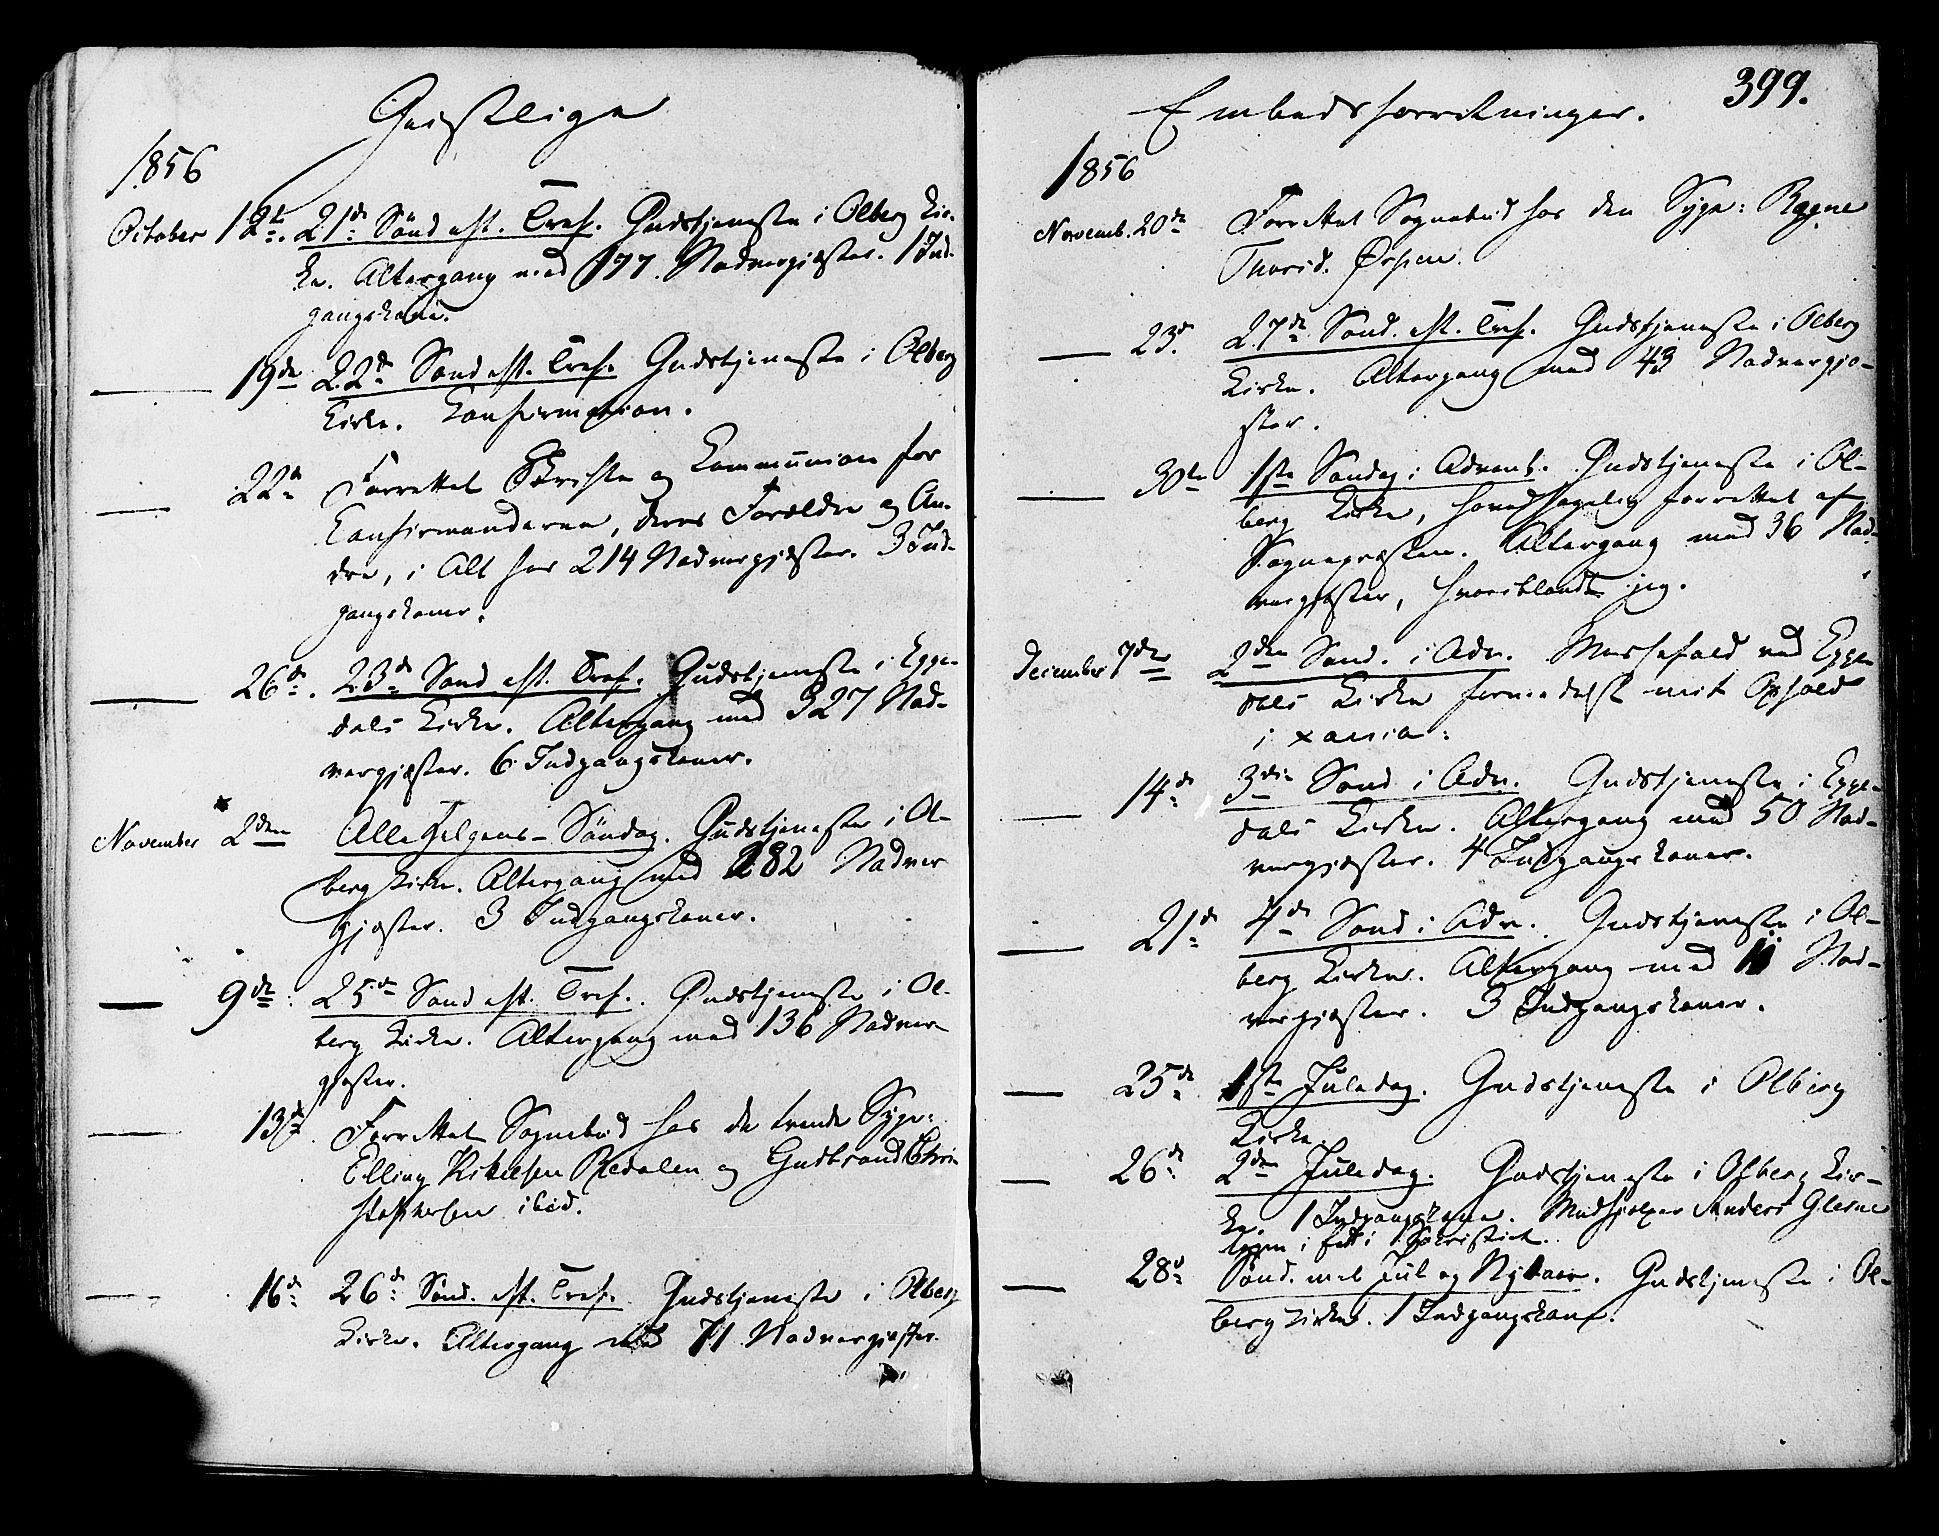 Geistlige
1856
October 12te. 21de Sönd eft. Tref. Gudstjeneste i Olberg Kir-
ke. Altergang med 177 Nadvergjæster. 1 Ind-
gangskone.
19de 22de Sönd eft. Tref. Gudstjeneste i Olberg
Kirke. Confirmation.
22de Forrettet Skrifte og Communion for
Confirmanderne, deres Forældre og An-
dre, i Alt for 214 Nadvergjæster. 3 Ind-
gangskoner.
26de. 23de Sönd eft. Tref. Gudstjeneste i Egge-
dals Kirke. Altergang med 327 Nad-
vergjæster. 6 Indgangskoner.
November 2den Alle Helgens-Söndag. Gudstjeneste i Ol-
berg Kirke. Altergang med 282 Nadver
gjæster. 3 Indgangskoner.
9de: 25de Sönd eft. Tref. Gudstjeneste i Ol-
berg Kirke. Altergang med 136 Nadver
gjæster.
13de Forrettet Sognebud hos de tvende Syge:
Elling Kittelsen Redalen og Gudbrand Chri-
stophersen ibid.
16de 26de Sönd. eft. Tref. Gudstjeneste i Olberg
Kirke. Altergang med 71 Nadvergjæster.
Embedsforretninger.
399.
1856
Novemb. 20de Forrettet Sognebud hos den Syge:
Thorsd.
23d. 27de Sönd. eft. Tref. Gudstjeneste i Olberg
Kirke. Altergang med 43 Nadvergjæ-
ster.
30te 1ste Söndag i Advent. Gudstjeneste i Ol-
berg Kirke, hovedsagelig forrettet af
Sognepræsten. Altergang med 36 Nad-
vergjæster, hvoriblandt jeg.
December 7de 2den Sönd. i Adv. Messefald ved Egge-
dals Kirke formedelst mit Ophold
i Xania.
14de 3die Sönd i Adv. Gudstjeneste i Egge-
dals Kirke. Altergang med 50 Nad-
vergjæster. 4 Indgangskoner.
21de 4de Sönd i Adv. Gudstjeneste i Ol-
berg Kirke. Altergang med 11 Nad-
vergjæster. 3 Indgangskoner.
25de 1ste Juledag. Gudstjeneste i Olberg
Kirke.
26de 2den Juledag. Gudstjeneste i Olberg Kir-
ke. 1 Indgangskone. Medhjelper Anders Glesne
i Sacristiet.
28de Sönd. mel. Jul og Nytaar. Gudstjeneste i Ol-
berg Kirke. 1 Indgangskone.